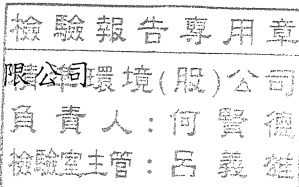 檢驗報告專用章
限公司環境(股)公司
負責人：何賢
檢驗室主管：呂義